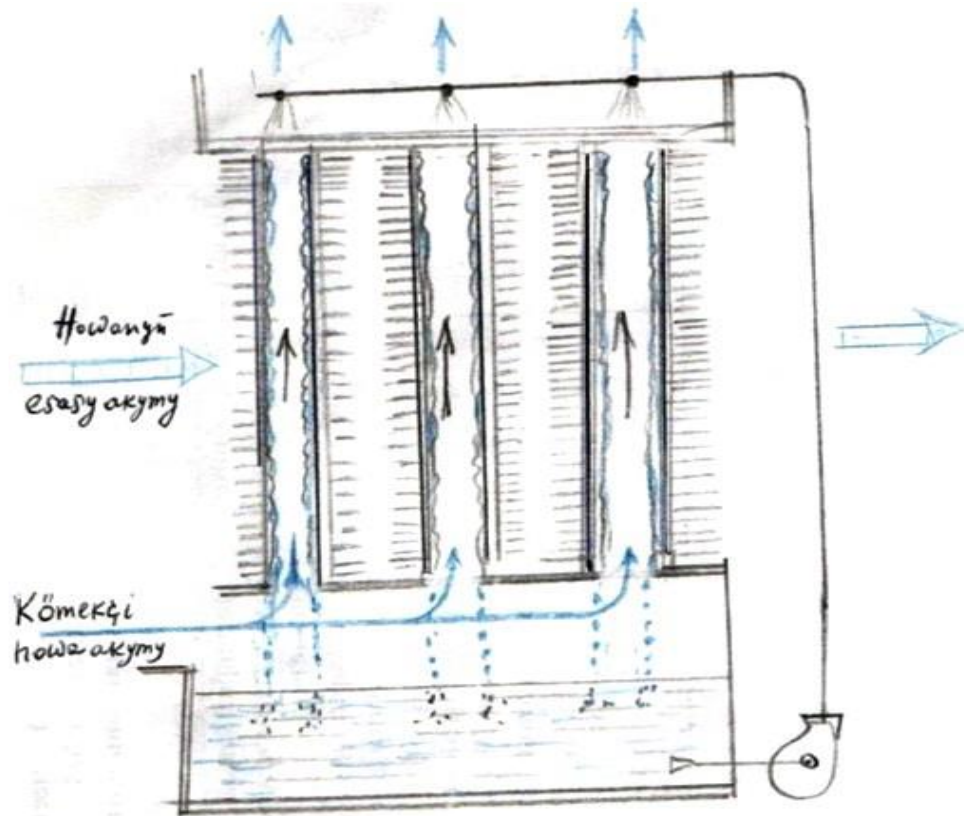 Howanyň
esasy akymy
Kömekçi
howa akymy